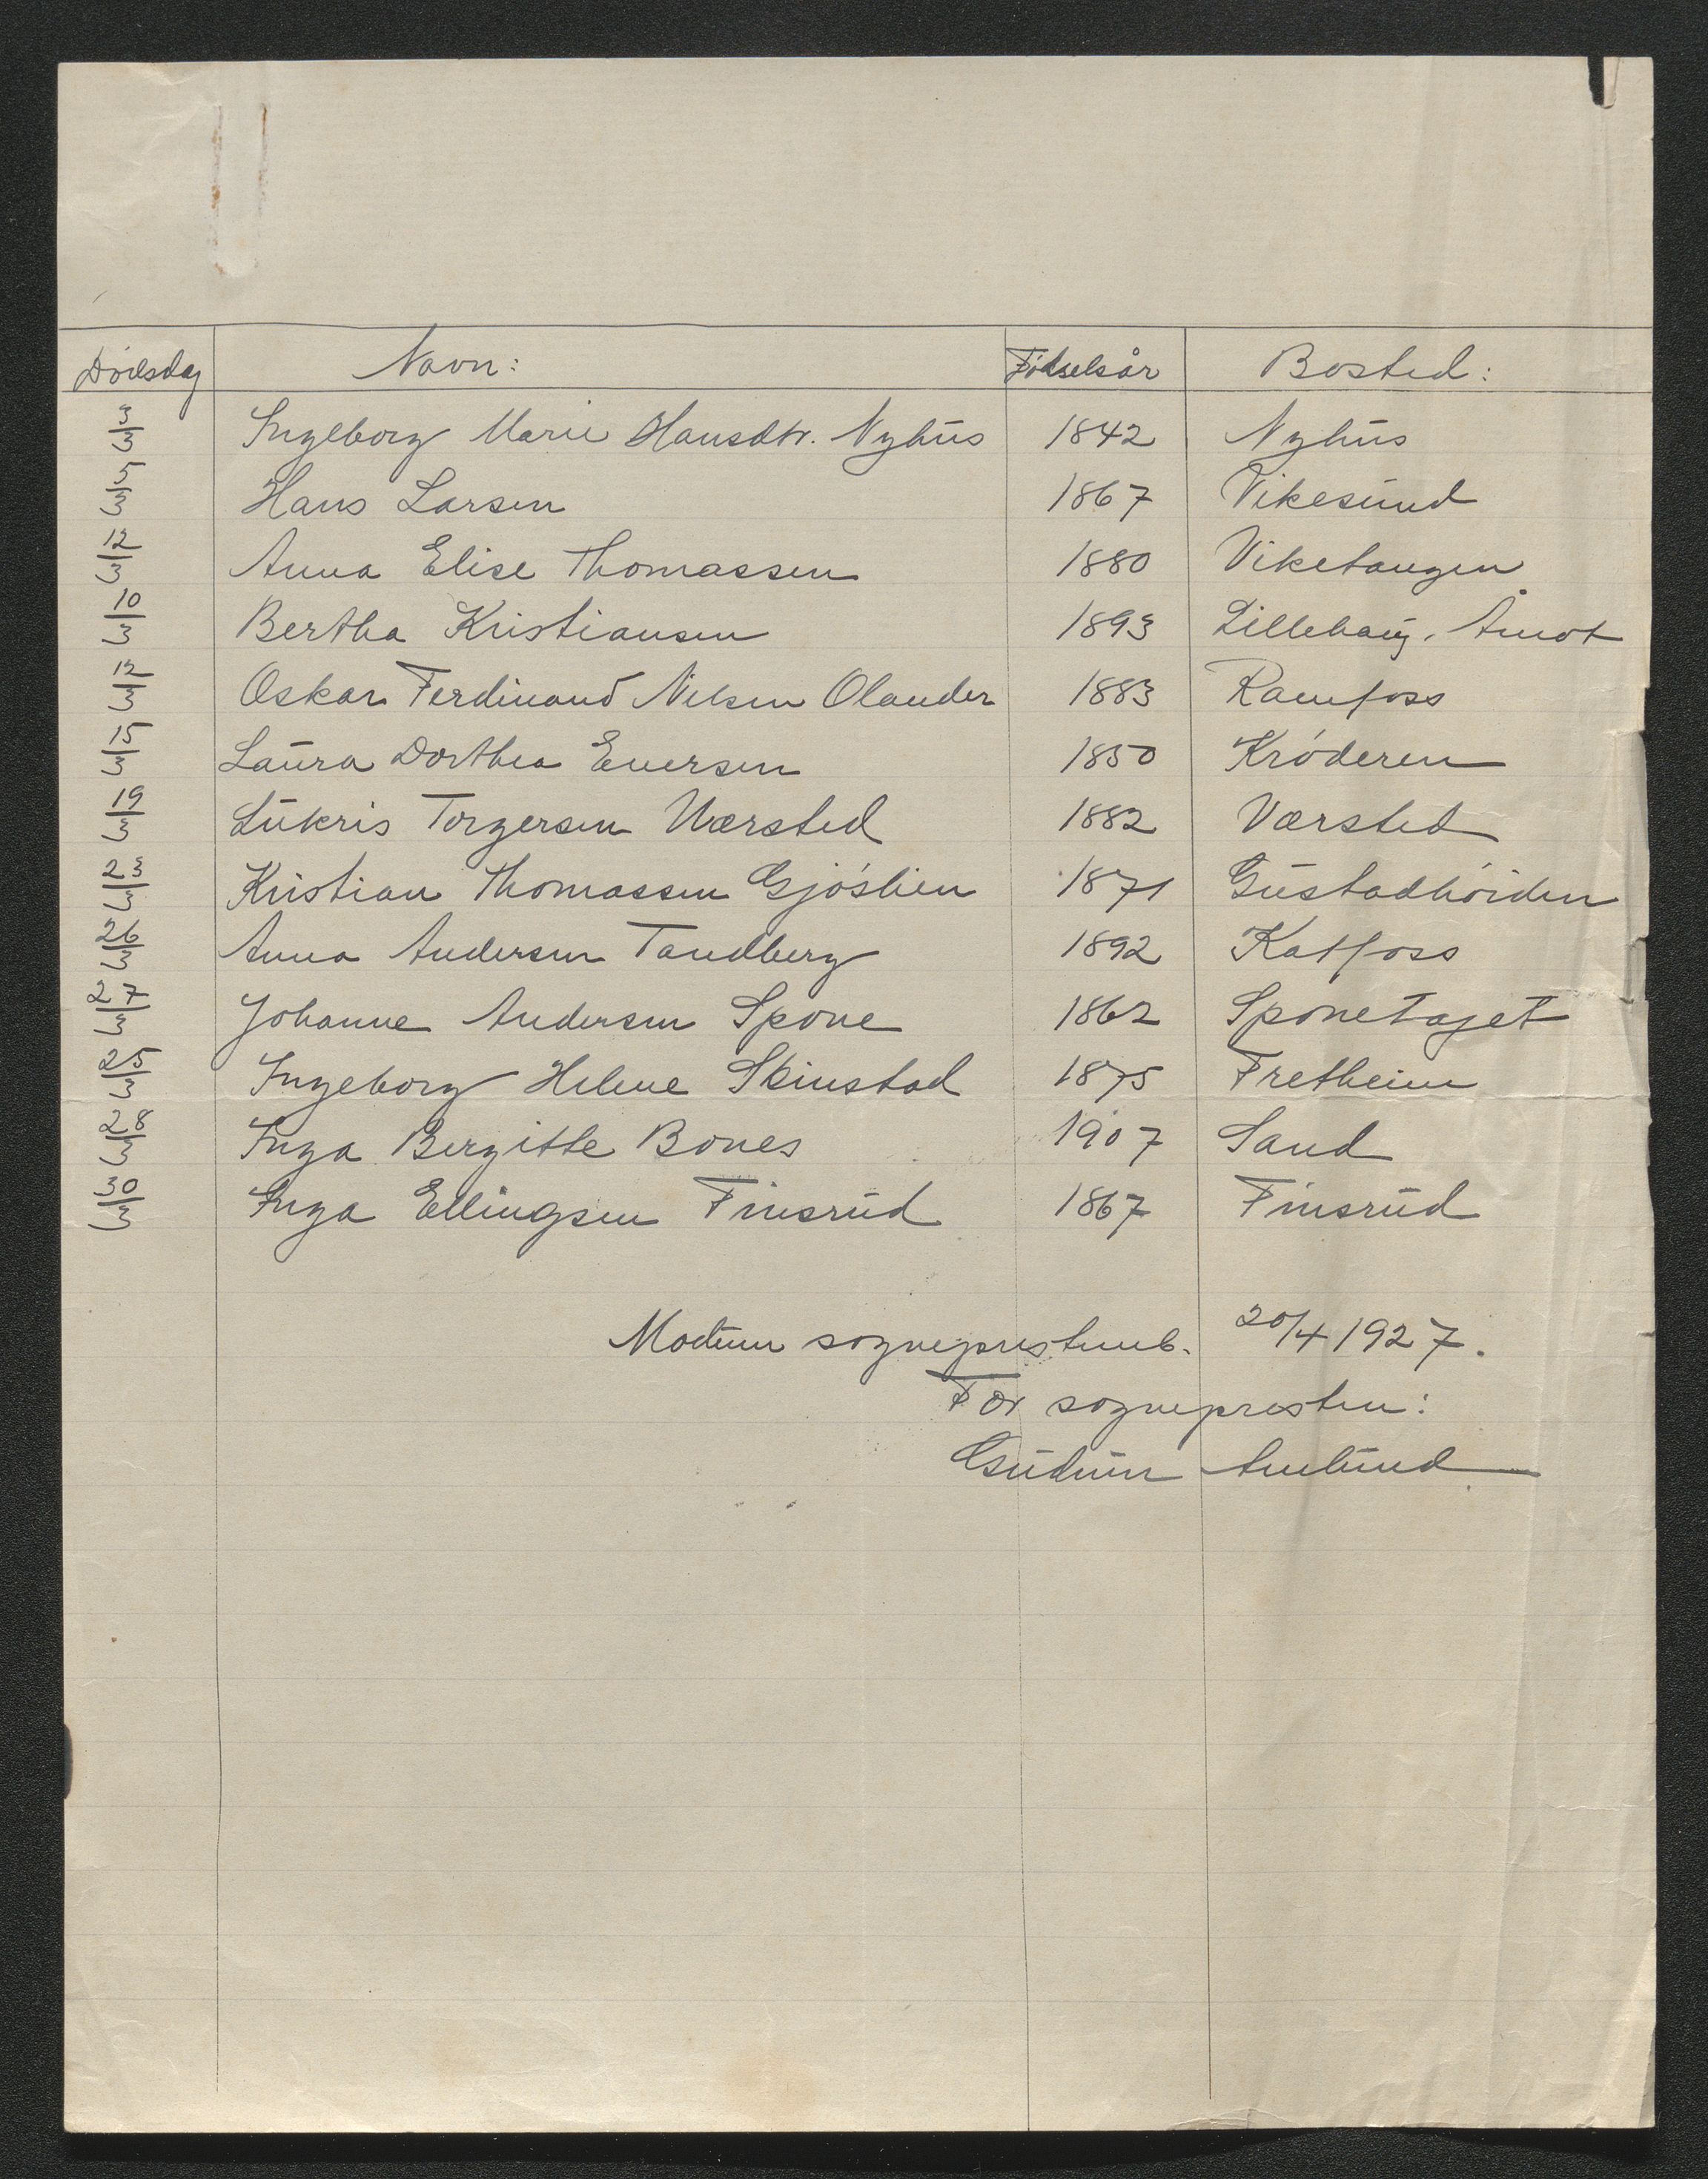 Dödsdag Navn: Födselsår Bosted:
3/3 Ingeborg Marie Hansdtr. Nyhus 1842 Nyhus
5/3 Hans Larsen 1867 Vikesund
12/3 Anna Elise Thomassen 1880 Viketangen
10/3 Bertha Kristiansen 1893 Lillehaug, Åmot
12/3 Oskar Ferdinand Nilsen Olander 1883 Ramfoss
15/3 Laura Dorthea Eversen 1850 Kröderen
19/3 Lukris Torgersen Værsted 1882 Værsted
23/3 Kristian Thomassen Gjöslien 1871 Gustadhöiden
26/3 Anna Andersen Tandberg 1892 Katfoss
27/3 Johanne Andersen Spone 1862 Sponetajet
25/3 Ingeborg Helene Skinstad 1875 Fretheim
28/3 Inga Bergitte Bones 1907 Sand
30/3 Inga Ellingsen Finsrud 1867 Finsrud
Modum sogneprestemb. 20/4 1927.
For sognepresten:
Gudrun Amlund